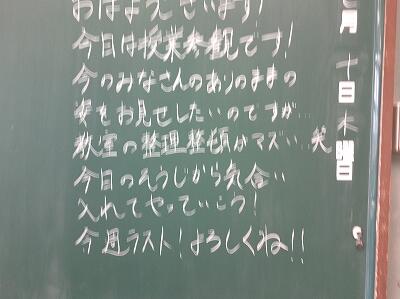 おはようございます!
今日は授業参観です!
今のみなさんのありのままの
姿をお見せしたいのですが…
教室の整理整頓がマズい…笑
今日のそうじから気合い
入れてやっていこう!
今週ラスト!よろしくね!!
月 十日 木曜日